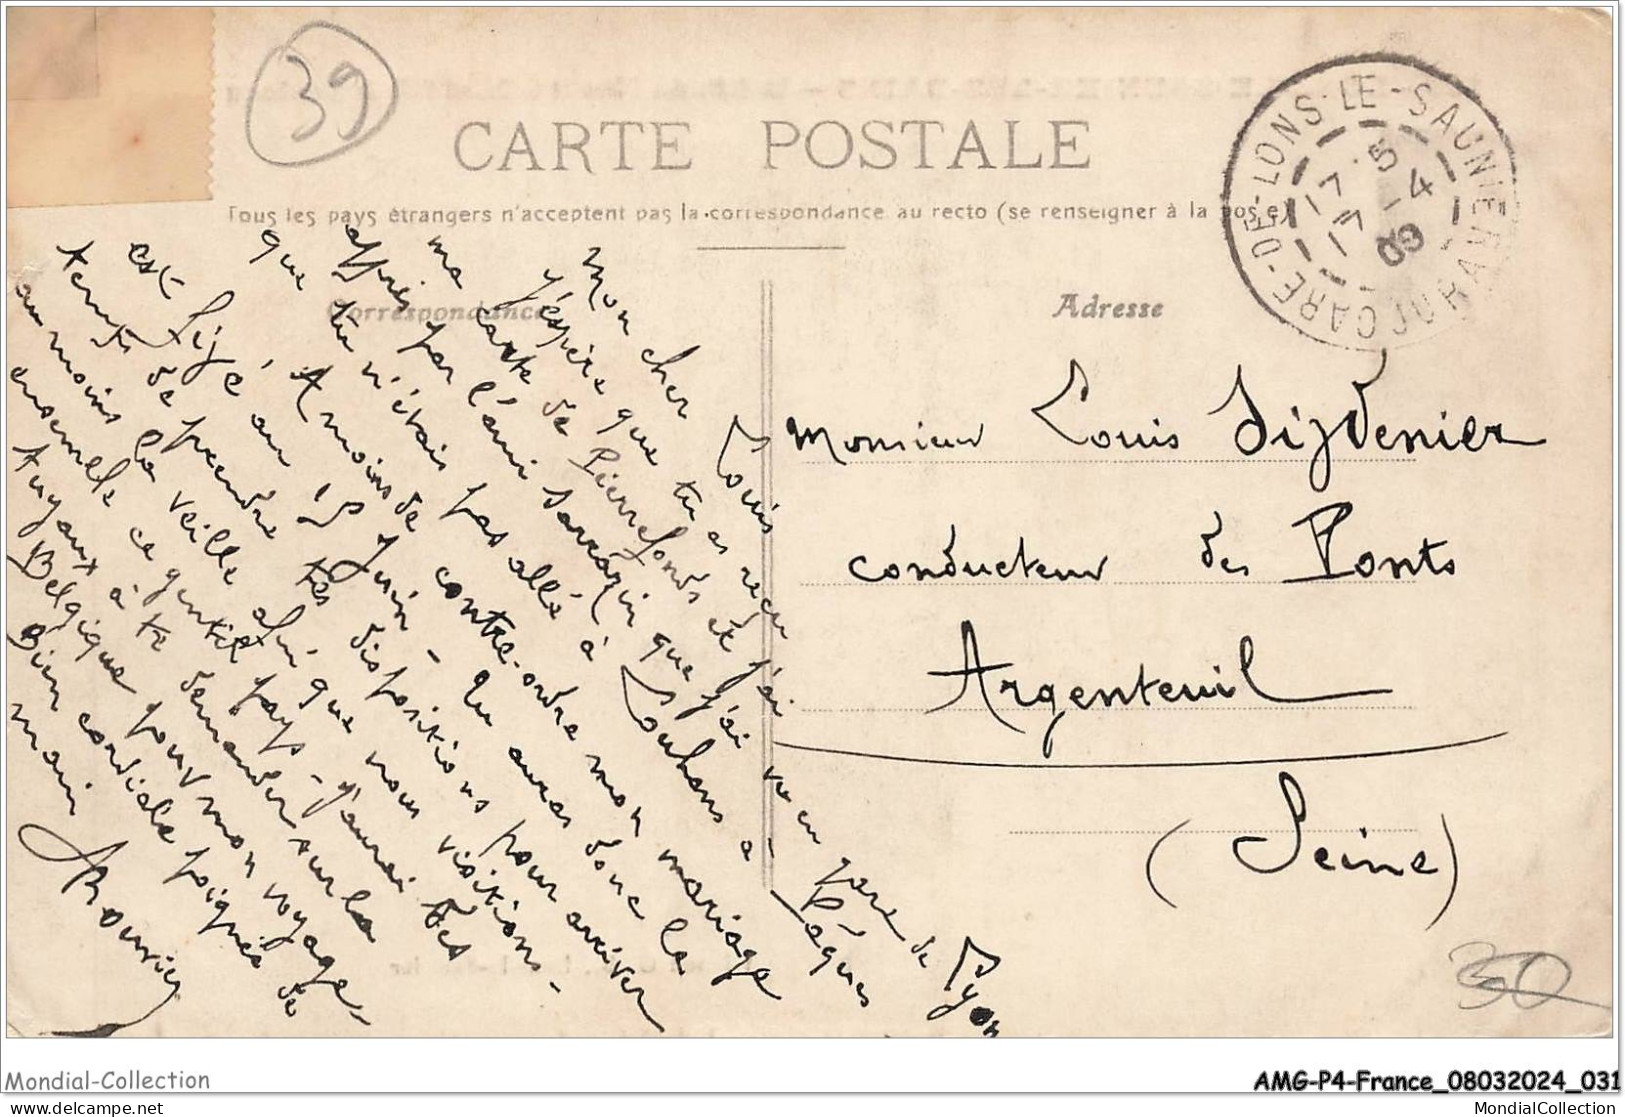 39
CARTE POSTALE
Tous les pays étrangers n'acceptent pas la correspondance au recto (se renseigner à la poste)
Correspondance
Adresse
GARE-DE-LONS-LE-SAUNIER
JURA
17 5
17 - 4
09
Mon cher Louis
J'espère que tu as reçu
ma carte de Pierrefonds et j'ai vu en gare de Lyon
après par l'ami Sarrazin que j'ai
que tu n'étais pas allé à Louhans à Pâques
A moins de contre-ordre mon mariage
est fixé au 15 Juin - Tu auras donc la
temps de prendre tes dispositions pour arriver
au moins la veille afin que nous visitions
ensemble ce gentil pays - J'aurai des
tuyaux à te demander sur la
Belgique pour mon voyage -
Bien cordiale poignée de
main
Monsieur Louis Sizdenier
conducteur des Ponts
Argenteuil
(Seine)
30
Mondial-Collection
AMG-P4-France_08032024_031
delcampe.net
MondialCollection